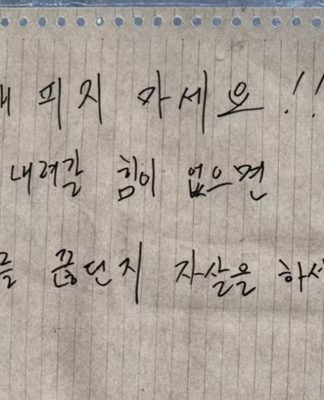 피지 마세요!!
내려갈 힘이 없으면
끊던지 자살을 하